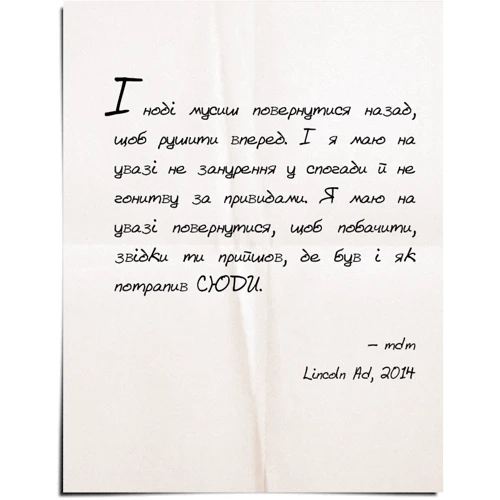 Іноді мусиш повернутися назад,
щоб рушити вперед. І я маю на
увазі не занурення у спогади й не
гонитву за привидами. Я маю на
увазі повернутися, щоб побачити,
звідки ти прийшов, де був і як
потрапив СЮДИ.
— mdm
Lincoln Ad, 2014